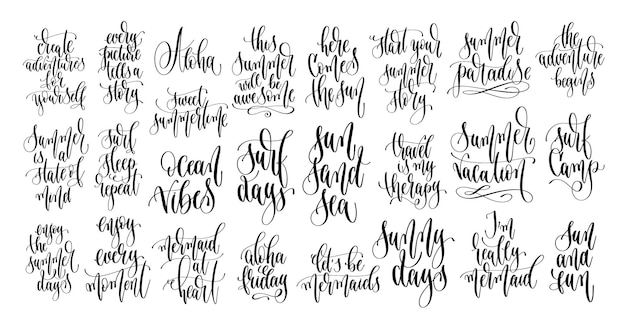 create
adventures
for
yourself
every
picture
tells a
story
Aloha
sweet
summertime
this
summer
will be
awesome
here
comes
the sun
start your
summer
story
summer
paradise
the
adventure
begins
Summer
is a
state of
mind
surf
sleep
repeat
ocean
vibes
surf
days
sun
sand
sea
travel
is my
therapy
Summer
vacation
surf
camp
enjoy
the
summer
days
enjoy
every
moment
mermaid
at
heart
aloha
friday
let's be
mermaids
sunny
days
I'm
really
mermaid
sun
and
fun